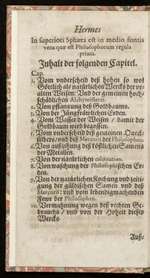 Hermes
In superiori Sphæra est in medio fontis
vena quæ est Philosophorum regula
prima.
Inhalt der folgenden Capitel.
Cap.
1. Von underscheid deß hohen so wol
Göttlich als natürlichen Wercks der
alten Weisen: Und der gemeinen hoch-
schädlichen Alchymisterey.
2. Von pflantzung des Goldbaums.
3. Von der Jungfräwlichen Erden.
4. Vom Wasser der Weisen / damit der
Goldbaum wird begossen.
5. Von underscheid deß gemeinen Queck-
silbers / und deß Mercurii der Philosophen.
6. Von aufflösung deß köstlichen Samens
der Metallen.
7. Von der natürlichen calcination.
8. Von waschung der Philosophischen Er-
den.
9. Von der natürlichen Kochung und zeiti-
gung deß güldischen Samen und deß
Mercurii: und vom lebendigmachenden
Fewr der Philosophen.
10. Vermahnung wegen deß rechten Ge-
brauchs / und von der Hoheit dieses
Wercks.
Auß-